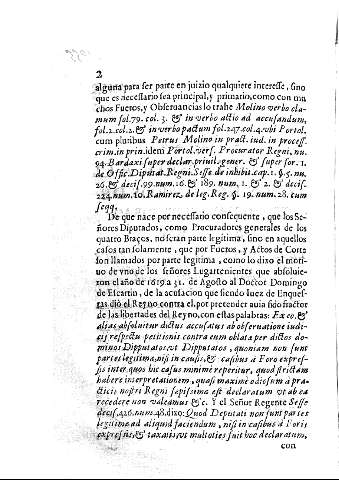 2
alguna para ser parte en juizio qualquiere interesse, sino
que es necessario sea principal, y primario, como con mu
chos Fueros, y Obseruancias lo trahe Molino verbo cla-
mum fol.79. col. 3. & in verbo actio ad accusandum,
fol.2.col.2. & in verbo pactum fol.247.col.4.vbi Portol.
cum pluribus Petrus Molino in pract. iud. in process.
crim. in prin. idem Portol. vers. Procurator Regni, nu.
94. Bardaxi super declar. priuil. gener. & super for. 1.
de Offic. Diputat. Regni. Sesse de inhibit. cap. 1. §. 5. nu.
26. & decis. 99. num. 16. & 189. num. 1. & 2. & decis.
224. num. 10. Ramirez de leg. Reg. §. 19. num. 28. cum
seqq.
De que nace por necessario consequente, que los Se-
ñores Diputados, como Procuradores generales de los
quatro Braços, no sean parte legitima, sino en aquellos
casos tan solamente, que por Fueros, y Actos de Corte
son llamados por parte legitima, como lo dixo el moti-
uo de vno de los señores Lugartenientes que absoluie-
ron el año de 1619. a 31. de Agosto al Doctor Domingo
de Escartin, de la acusacion que siendo Iuez de Enques-
tas dió el Reyno contra el, por pretender auia sido fractor
de las libertades del Reyno, con estas palabras: Ex eo, &
alias absoluitur dictus accusatus ab obseruatione iudi-
cij respectu petitionis contra eum oblatæ per dictos do-
minos Dipputatos, vt Dipputatos, quoniam non sunt
partes legitima, nisi in causis, & casibus à Foro expres-
sis inter quos hic casus minimè reperitur, quod strictam
habere interpretationem, quasi maximè odiosum à pra-
cticis nostri Regni sapissimè est declaratum vt ab ea
recedere non valeamus &c. Y el Señor Regente Sesse
decis. 426. num. 48. dixo: Quod Deputati non sunt partes
legitimæ ad aliquid faciendum, nisi in casibus à Foris
expressis, & taxatis, vt multoties fuit hoc declaratum,
con